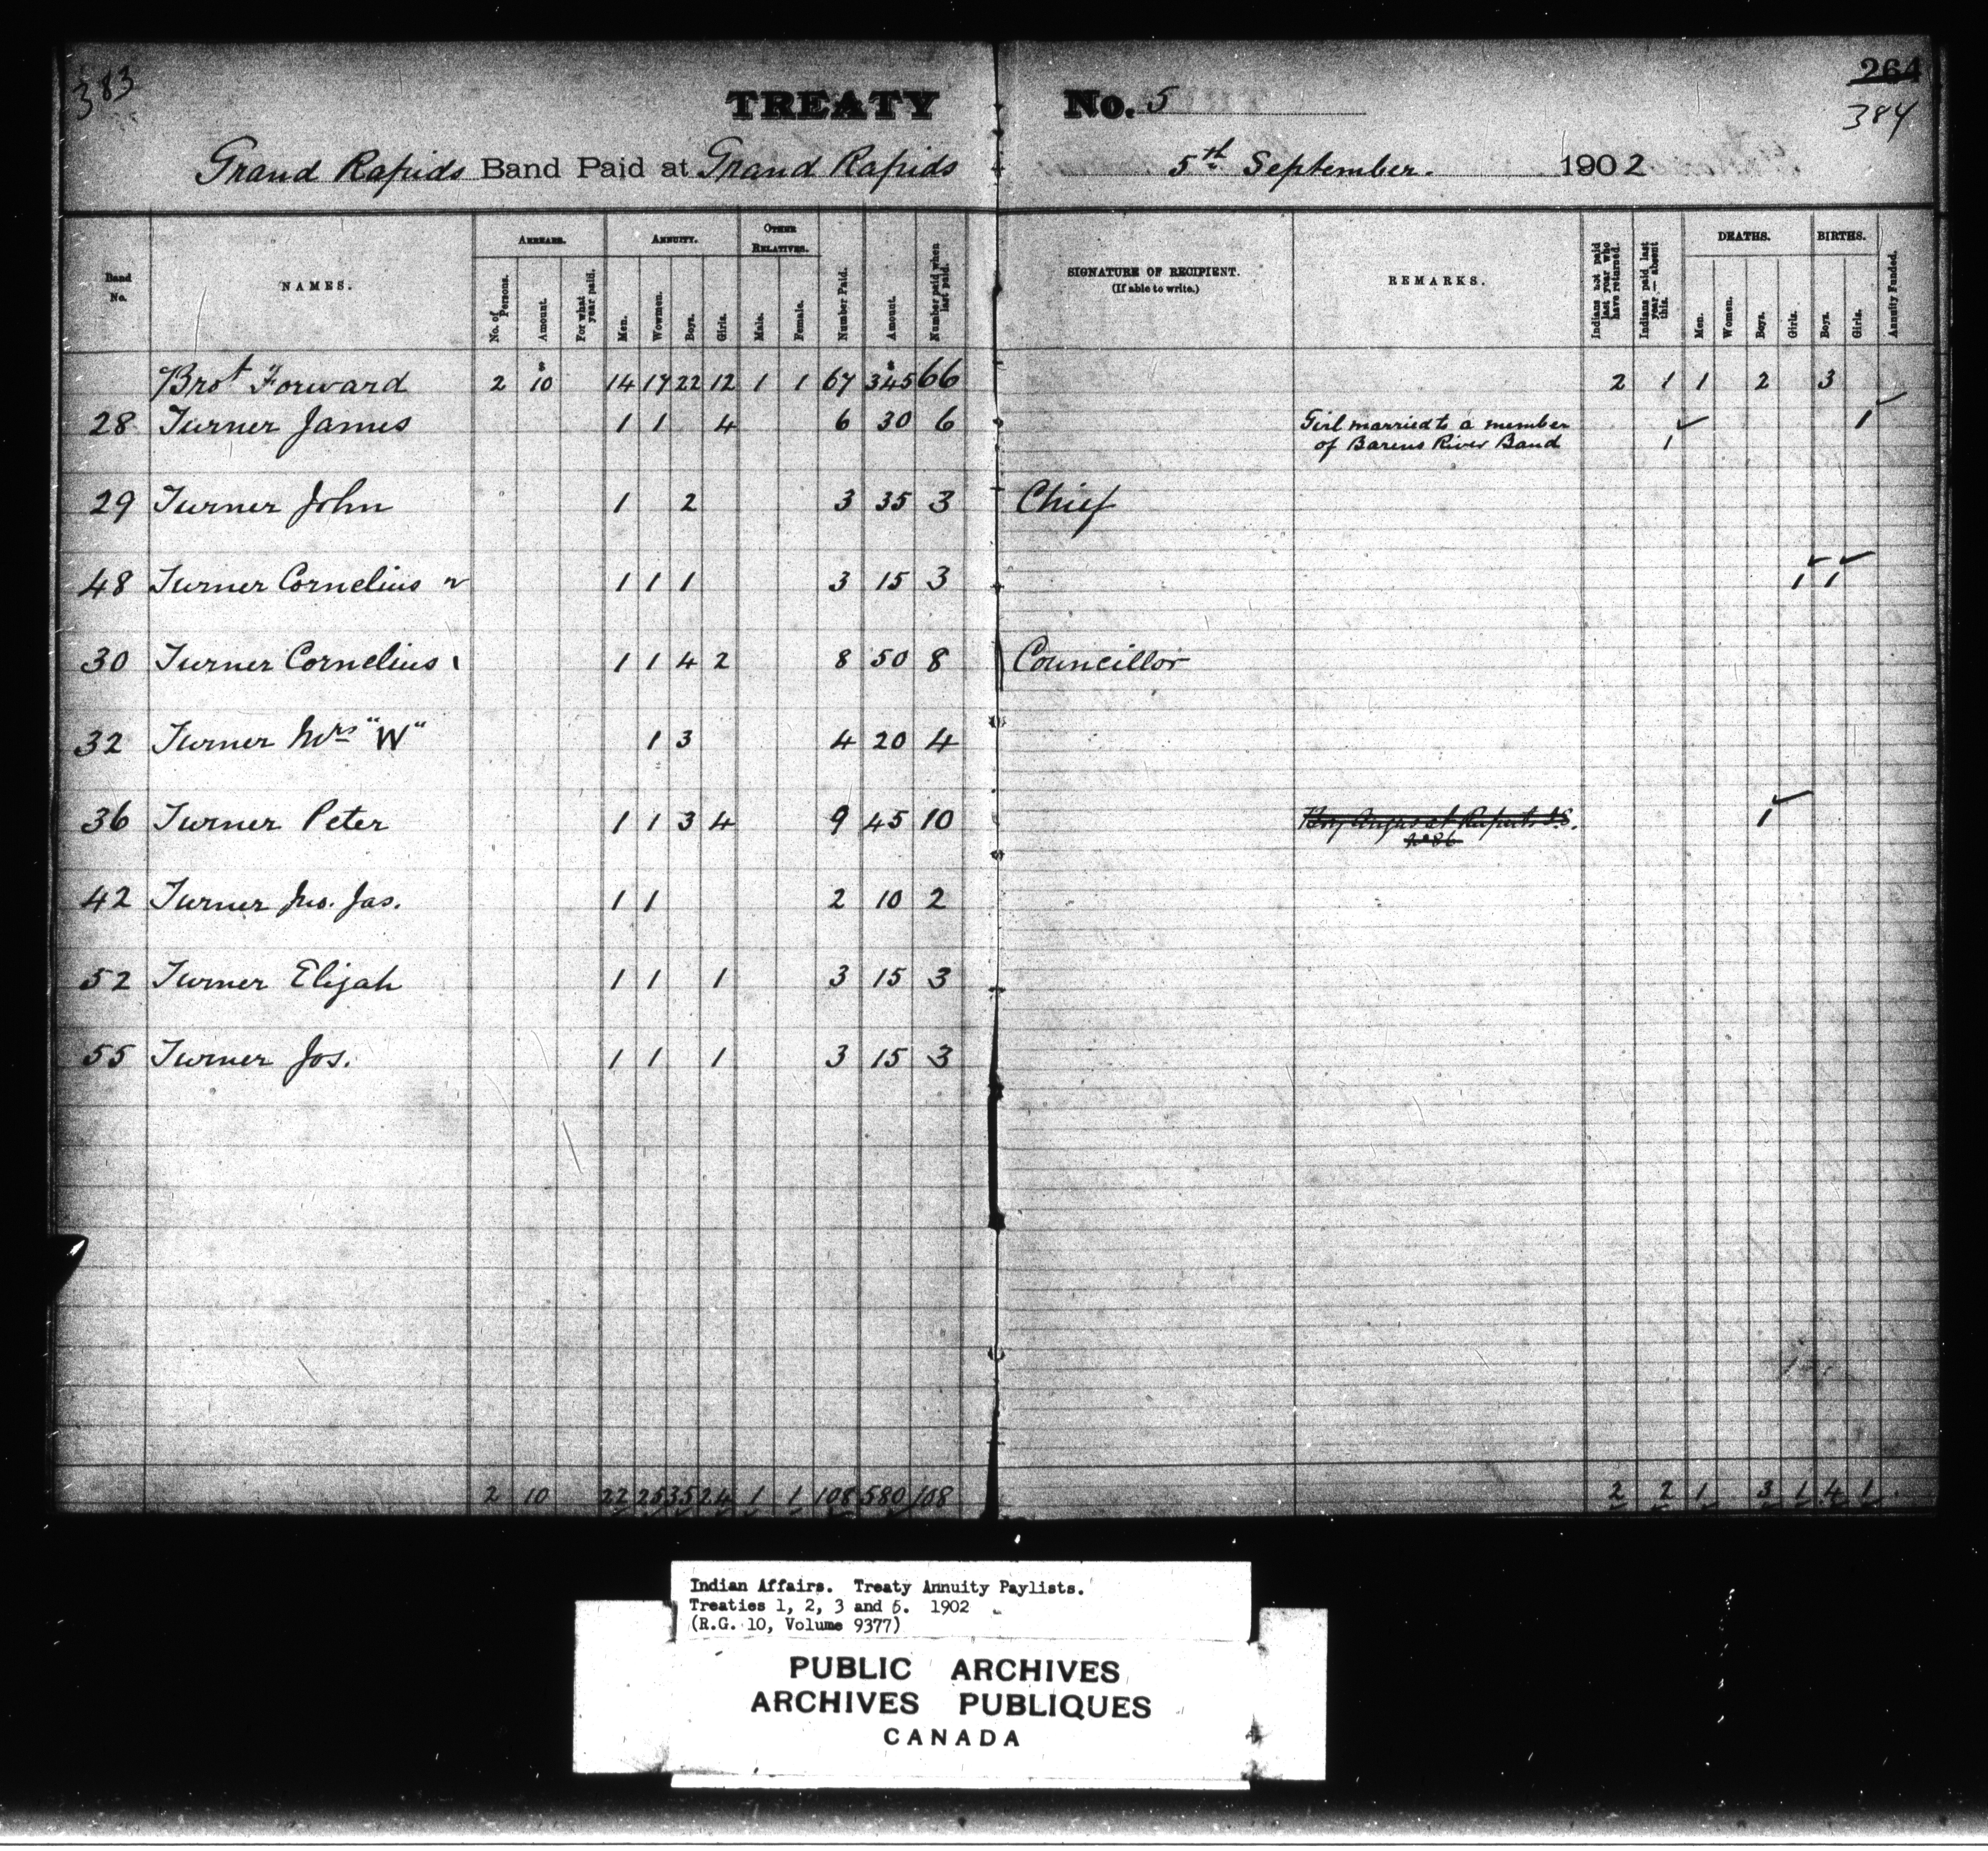 383
264
384
TREATY No. 5
Grand Rapids Band Paid at Grand Rapids 5th September. 1902
Band No.
NAMES.
ARREARS.
No. of Persons.
Amount.
For what year paid.
ANNUITY.
Men.
Wowmen.
Boys.
Girls.
OTHER RELATIVES.
Male.
Female.
Number Paid.
Amount.
Number paid when last paid.
SIGNATURE OF RECIPIENT.
(If able to write.)
REMARKS.
Indians not paid last year who have returned.
Indians paid last year — absent this.
DEATHS.
Men.
Women.
Boys.
Girls.
BIRTHS.
Boys.
Girls.
Annuity Funded.
Brot Forward 2 $10 14 17 22 12 1 1 67 $345 66 2 1 1 2 3
28 Turner James 1 1 4 6 30 6 Girl married to a member 1
of Barens River Band 1
29 Turner John 1 2 3 35 3 Chief
48 Turner Cornelius 1 1 1 3 15 3 1 1
30 Turner Cornelius 1 1 1 4 2 8 50 8 Councillor
32 Turner Mrs "W" 1 3 4 20 4
36 Turner Peter 1 1 3 4 9 45 10 Boy Angus at Ruperts I.S. 1
No 86
42 Turner Jno. Jas. 1 1 2 10 2
52 Turner Elijah 1 1 1 3 15 3
55 Turner Jos. 1 1 1 3 15 3
2 10 22 25 35 24 1 1 108 580 108 2 2 1 3 1 4 1
Indian Affairs. Treaty Annuity Paylists.
Treaties 1, 2, 3 and 5. 1902
(R.G. 10, Volume 9377)
PUBLIC ARCHIVES
ARCHIVES PUBLIQUES
CANADA